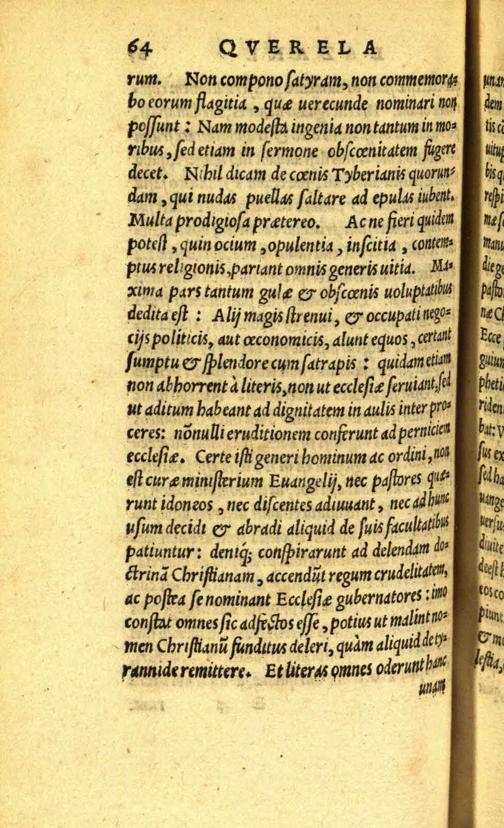 64 QVERELA
rum. Non compono satyram, non commemora-
bo eorum flagitia, quæ uerecunde nominari non
possunt: Nam modesta ingenia non tantum in mo-
ribus, sed etiam in sermone obscœnitatem fugere
decet. Nihil dicam de cœnis Tyberianis quorun-
dam, qui nudas puellas saltare ad epulas iubent.
Multa prodigiosa prætereo. Ac ne fieri quidem
potest, quin ocium, opulentia, inscitia, contem-
ptus religionis, pariant omnis generis uitia. Ma-
xima pars tantum gulæ & obscœnis uoluptatibus
dedita est: Alij magis strenui, & occupati nego-
cijs politicis, aut œconomicis, alunt equos, certant
sumptu & splendore cum satrapis: quidam etiam
non abhorrent à literis, non ut ecclesiæ seruiant, sed
ut aditum habeant ad dignitatem in aulis inter pro-
ceres: nõnulli eruditionem conferunt ad perniciem
ecclesiæ. Certe isti generi hominum ac ordini, non
est curæ ministerium Euangelij, nec pastores quæ-
runt idoneos, nec discentes adiuuant, nec ad hunc
usum decidi & abradi aliquid de suis facultatibus
patiuntur: deniq; conspirarunt ad delendam do-
ctrinã Christianam, accendũt regum crudelitatem,
ac postea se nominant Ecclesiæ gubernatores: imo
constat omnes sic adfectos esse, potius ut malint no-
men Christianũ funditus deleri, quàm aliquid de ty-
rannide remittere. Et literas omnes oderunt hanc
unam